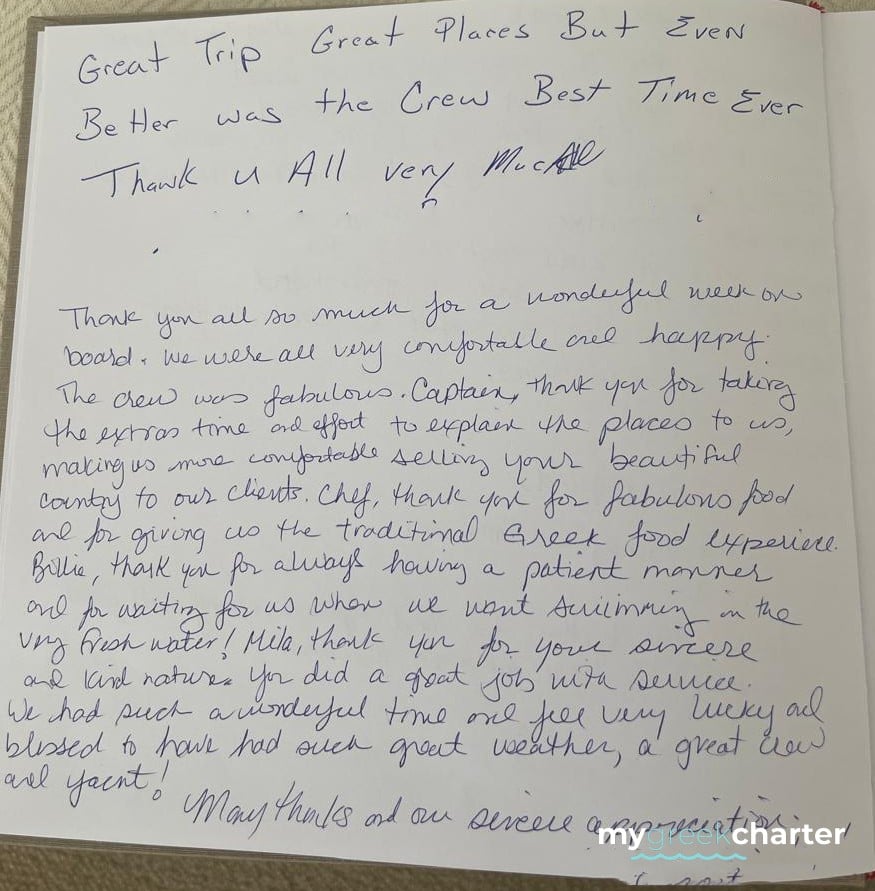 Great Trip Great Places But Even
Better was the Crew Best Time Ever
Thank u All very Much
Thank you all so much for a wonderful week on
board. We were all very comfortable and happy.
The crew was fabulous. Captain, thank you for taking
the extras time and effort to explain the places to us,
making us more comfortable selling your beautiful
country to our clients. Chef, thank you for fabulous food
and for giving us the traditional Greek food experience.
Billie, thank you for always having a patient manner
and for waiting for us when we went swimming in the
very fresh water! Mila, thank you for your sincere
and kind nature. You did a great job with service.
We had such a wonderful time and feel very lucky and
blessed to have had such great weather, a great crew
and yacht!
Many thanks and our sincere appreciation.
mygreekcharter